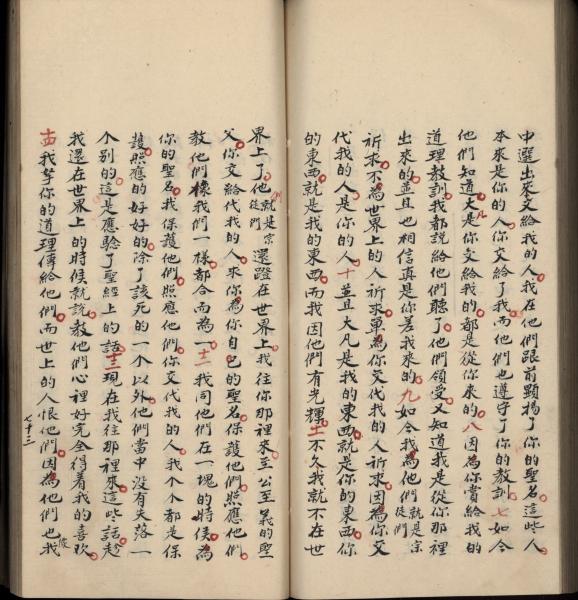 中選出來交給我的人我在他們跟前顯揚了你的聖名這些人
本來是你的人你交給了我而他們也遵守了你的教訓七如今
他們知道大凡是你交給我的都是從你來的八因為你賞給我的
道理教訓我都說給他們聽了他們領受又知道我是從你那裡
出來的並且也相信真是你差我來的九如今我為他們就是宗徒們
祈求不為世界上的人祈求單為你交代我的人祈求因為你交
代我的人是你的人十並且大凡是我的東西就是你的東西你
的東西就是我的東西而我因他們有光輝十一不久我就不在世
界上了他們就是宗徒們還蹬在世界上我往你那裡來至公至義的聖
父你交給代我的人求你為你自己的聖名保護他們照應他們
教他們像我們一樣都合而為一十二我同他們在一塊的時候為
你的聖名我保護他們照應他們你交代我的人我个个都是保
護照應的好好的除了該死的一个以外他們當中沒有失落一
个別的這是應驗了聖經上的話十三現在我往那裡來這些話趁
我還在世界上的時候就說教他們心裡好完全得着我的喜歡
十四我拏你的道理傳給他們而世上的人恨他們因為他們也像我
七十三